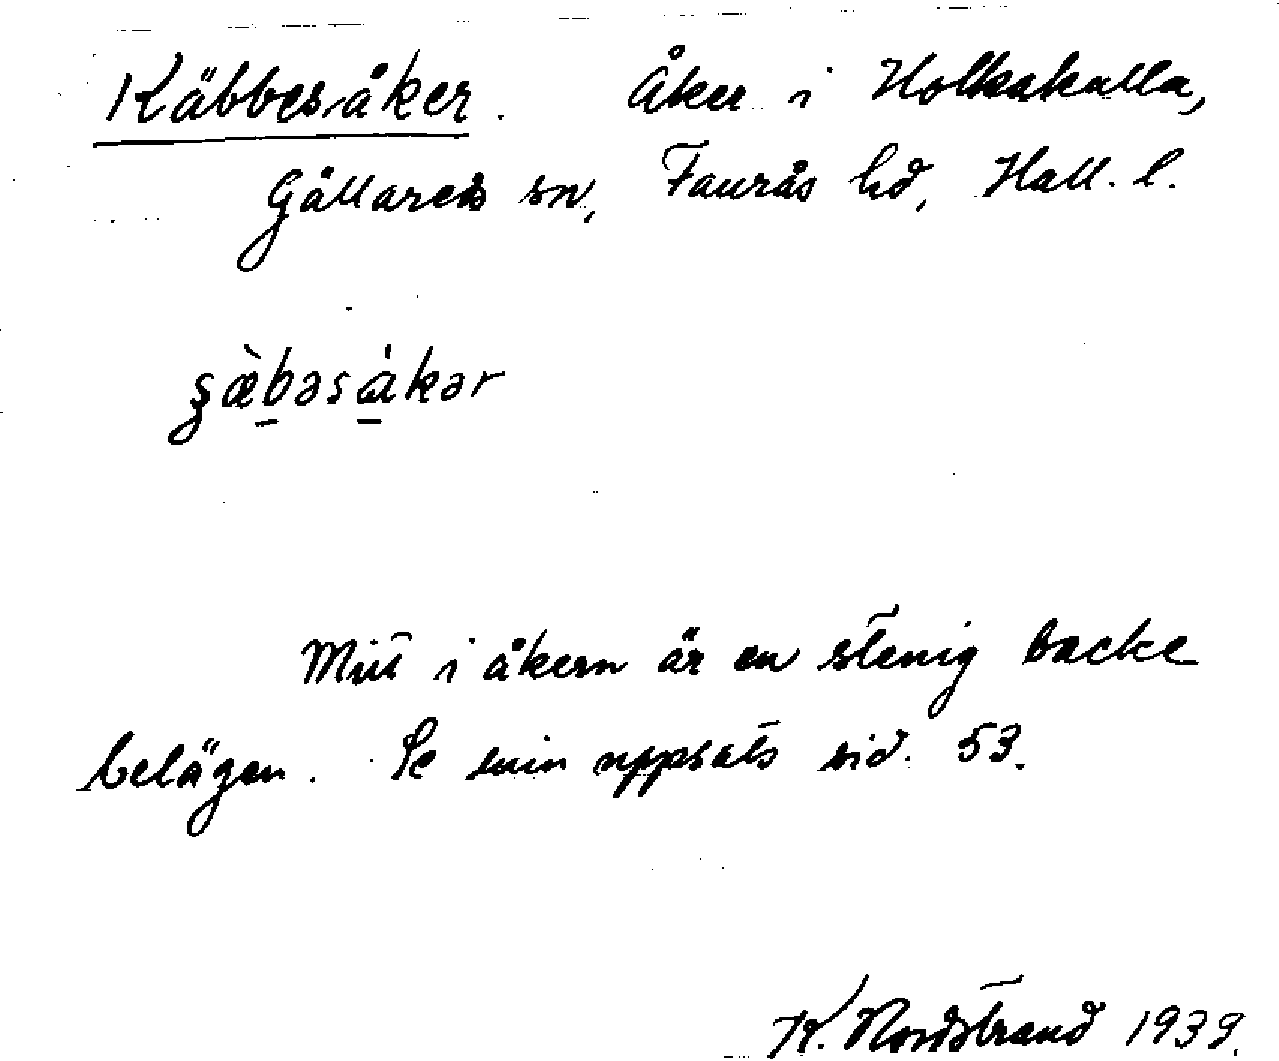 Käbbesåker. Åker i Holkakalla,
Gällareds sn, Faurås hd, Hall. l.
ʂæ̀bəsåkər
Mitt i åkern är en stenig backe
belägen. Se min uppsats sid. 53.
K. Nordstrand 1939.